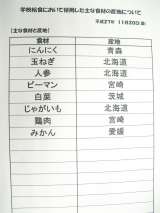 学校給食において使用した主な食材の産地について
平成27年 11月20日(金)
【主な食材と産地】
食材 産地
にんにく 青森
玉ねぎ 北海道
人参 北海道
ピーマン 宮崎
白菜 茨城
じゃがいも 北海道
鶏肉 宮崎
みかん 愛媛